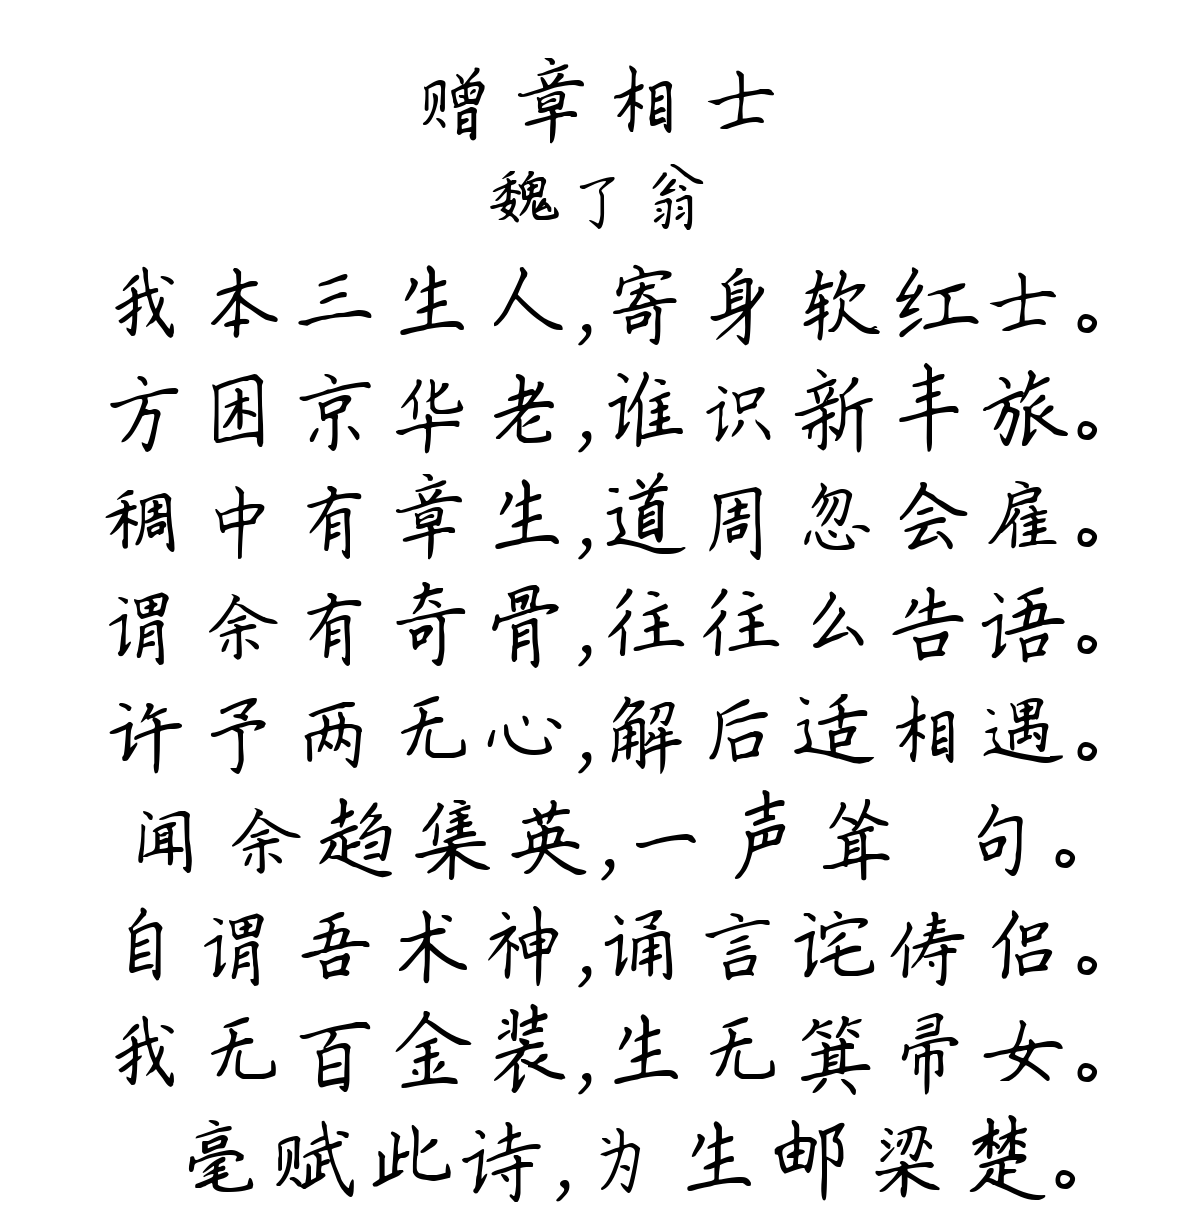 赠章相士
魏了翁
我本三生人,寄身软红士。
方困京华老,谁识新丰旅。
稠中有章生,道周忽会雇。
谓余有奇骨,往往么告语。
许予两无心,解后适相遇。
闻余趋集英,一声耸 句。
自谓吾术神,诵言诧俦侣。
我无百金装,生无箕帚女。
毫赋此诗,为生邮梁楚。